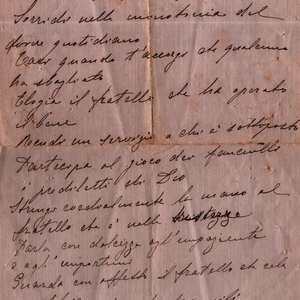 Sorridi nella monotonia del
dovere quotidiano
Taci quando t'accorgi che qualcuno
ha sbagliato
Elogia il fratello che ha operato
il bene
Rendi un servizio a chi è sottoposto
Partecipa al gioco dei fanciulli
i prediletti di Dio
Stringi cordialmente la mano al
fratello che è nella tristezza
Parla con dolcezza agl'impazienti
e agl'importuni
Guarda con affetto il fratello che cela